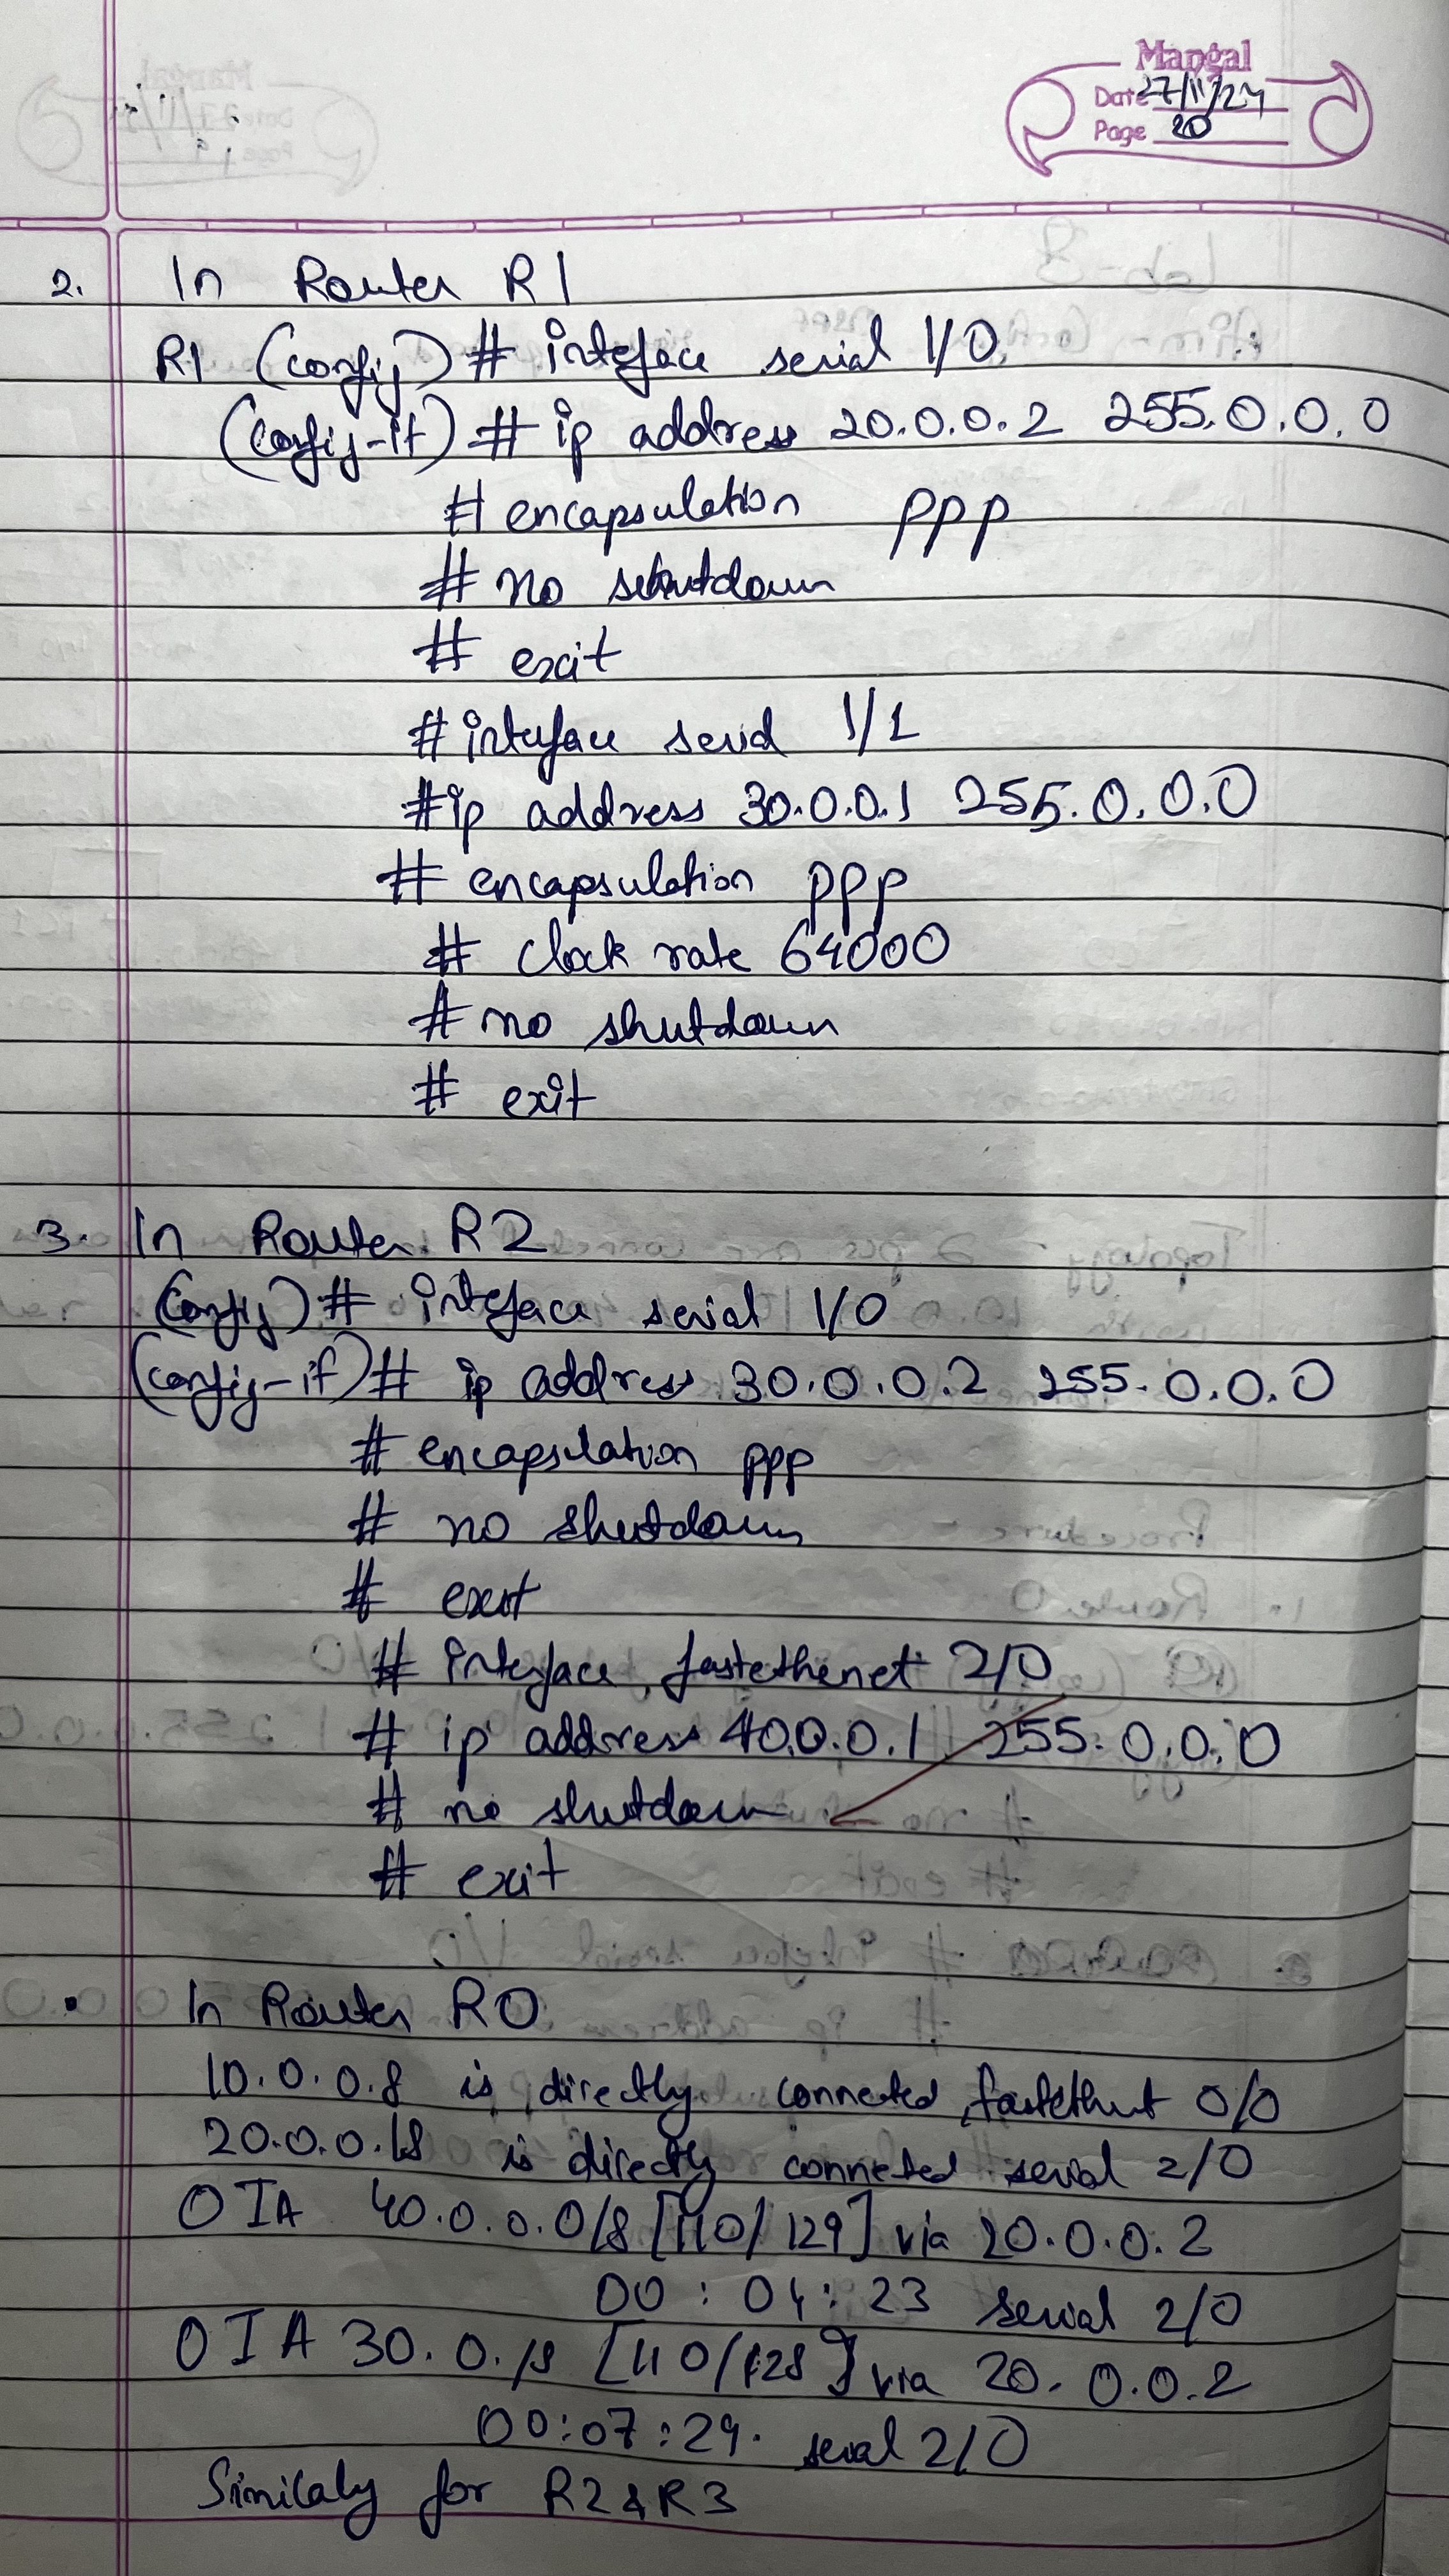 Mangal
Date 27/11/24
Page 20
2. In Router R1
R1 (config) # inteface serial 1/0
(config-if) # ip address 20.0.0.2 255.0.0.0
# encapsulation ppp
# no shutdown
# exit
# interface serial 1/1
# ip address 30.0.0.1 255.0.0.0
# encapsulation ppp
# clock rate 64000
# no shutdown
# exit
3. In Router R2
(config) # inteface serial 1/0
(config-if) # ip address 30.0.0.2 255.0.0.0
# encapsulation ppp
# no shutdown
# exit
# interface, fastethenet 2/0
# ip address 40.0.0.1 255.0.0.0
# no shutdown
# exit
• In Router R0
10.0.0.8 is directly connected, fastethnet 0/0
20.0.0./8 is directly connected serial 2/0
O IA 40.0.0.0/8 [110/129] via 20.0.0.2
00:04:23 serial 2/0
O IA 30.0./8 [110/128] via 20.0.0.2
00:07:29. serial 2/0
Similaly for R2 & R3